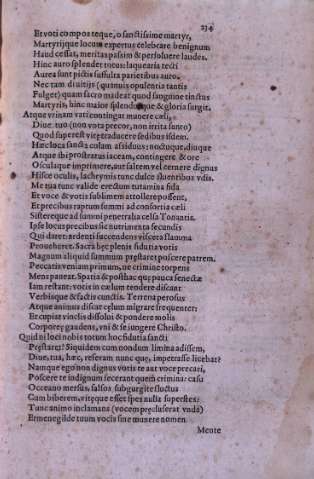 234
Et voti compos teque, o sanctissime martyr,
Martyrijque locum expertus celebrare benignum
Haud cessat, meritas passim & persoluere laudes.
Hinc auro splendet totus: laquearia tecti
Aurea sunt pictis suffulta parietibus auro.
Nec tam diuitijs (quamuis opulentia tantis
Fulget) quam sacro madeat quod sanguine tinctus
Martyris, hinc maior splendorque & gloria surgit.
Atque vtinam vati contingat munere cœli,
Diue: tuo (non vota precor, non irrita sunto)
Quod superest vitę traducere sedibus istent.
Hæc loca sancta colam assiduus: noctuque, diuque
Atque ibi prostratus iaceam, contingere & ore
Osculaque imprimere, aut saltem vel cernere dignus
Hisce oculis, lachrymis tunc dulce fluentibus vdis.
Me tua tunc valide erectum tutamina fida
Et voce & votis sublimem attollere possent,
Et precibus raptum summi ad consortia cœli
Sistereque ad summi penetralia celsa Tonantis.
Ipse locus precibus sic nutrimenta secundis
Qui daret: ardenti succendens viscera flamma
Proueheret. Sacra hęc plenis fidutia votis
Magnum aliquid summum pręstaret poscere patrem.
Peccatis veniam primum, ne crimine torpens
Mens paueat. Spatia & posthac quę pauca senectæ
Iam restant: votis in cælum tendere discant
Verbisque & factis cunctis. Terrena perosus
Atque animus discat cęlum migrare frequenter:
Et cupiat vinclis dissolui & pondere molis
Corporeę gaudens, vni & se iungere Christo.
Quid ni loci nobis totum hoc fidutia sancti
Pręstaret? Siquidem cum nondum limina adissem,
Diue, tua, hæc, reseram nunc quę, impetrasse licebat?
Namque ego non dignus votis te aut voce precari,
Poscere te indignum fecerant quem crimina: casu
Oceano mersus, salsos subgurgite fluctus
Cum biberem, vitęque esset spes nulla superstes:
Tunc animo inclamans (vocem pręcluserat vnda)
Ermenegilde tuum vocis sine munere nomen
Mente